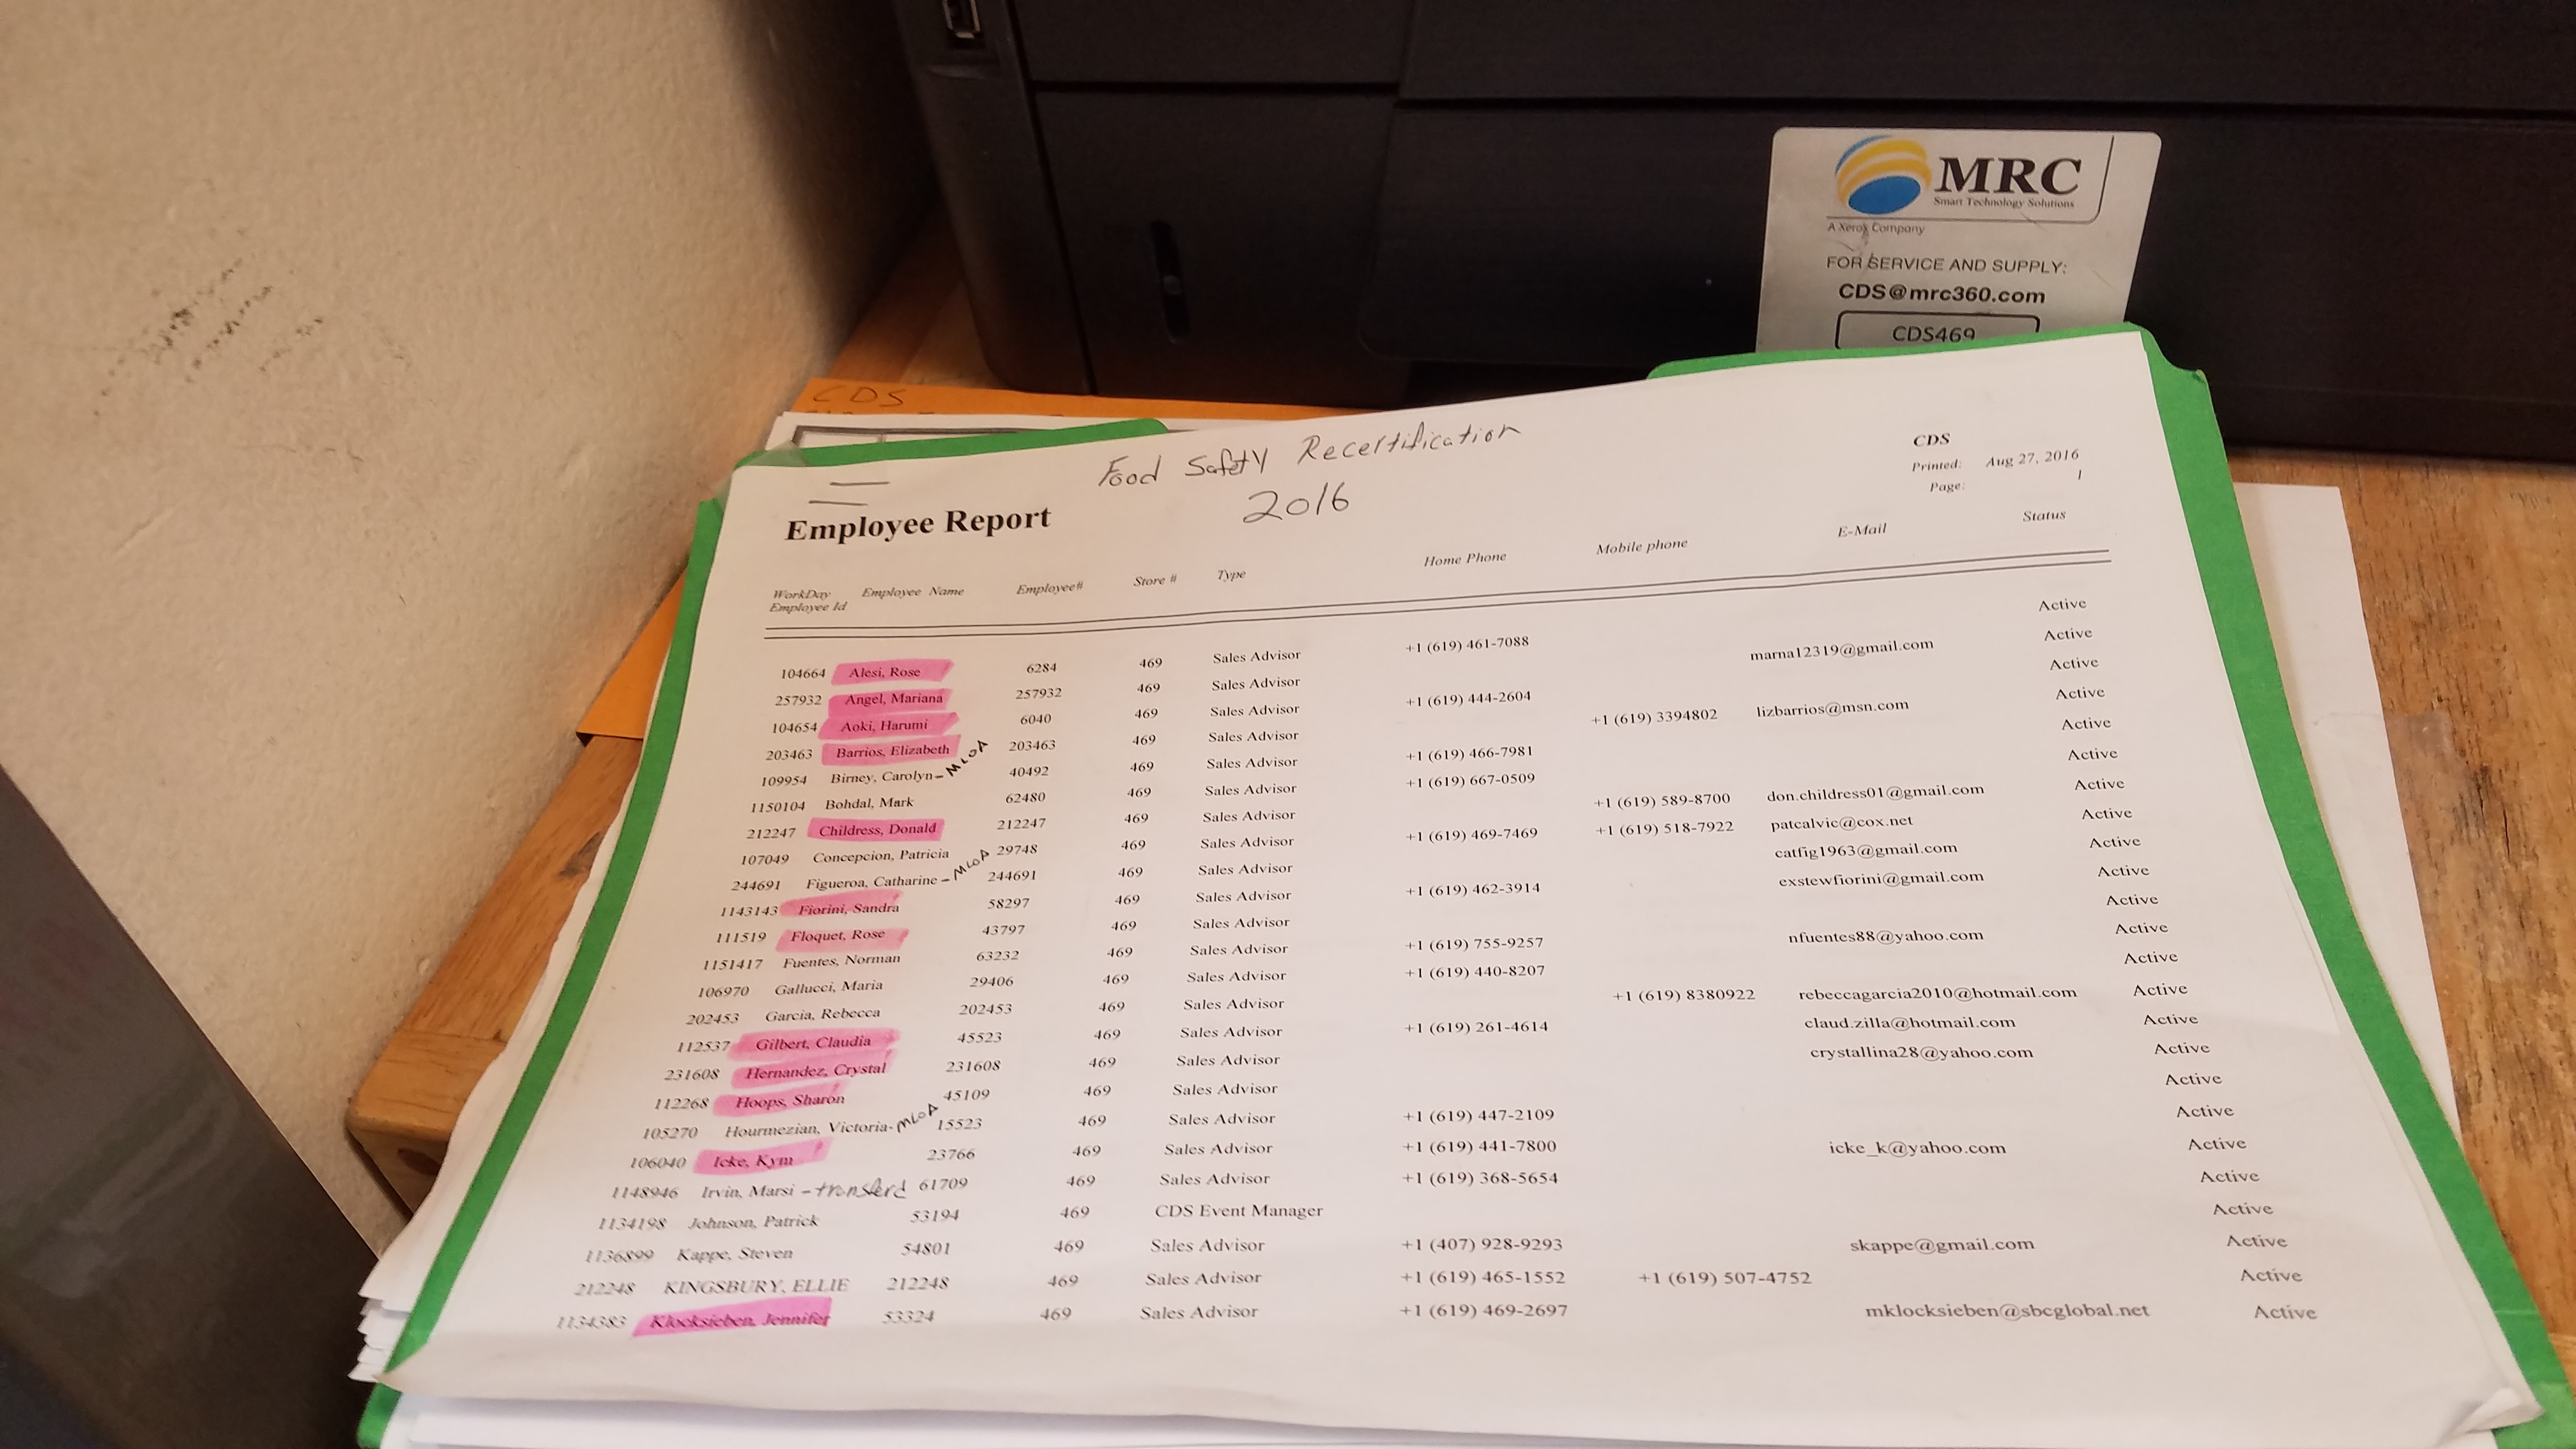 MRC
Smart Technology Solutions
A Xerox Company
FOR SERVICE AND SUPPLY:
CDS@mrc360.com
CDS469
CDS
Food Safety Recertification
2016
CDS
Printed: Aug 27, 2016
Page: 1
Employee Report
WorkDay Employee Id Employee Name Employee# Store # Type Home Phone Mobile phone E-Mail Status
104664 Alesi, Rose 6284 469 Sales Advisor +1 (619) 461-7088 Active
257932 Angel, Mariana 257932 469 Sales Advisor marna12319@gmail.com Active
104654 Aoki, Harumi 6040 469 Sales Advisor +1 (619) 444-2604 Active
203463 Barrios, Elizabeth 203463 469 Sales Advisor +1 (619) 3394802 lizbarrios@msn.com Active
109954 Birney, Carolyn - MLOA 40492 469 Sales Advisor +1 (619) 466-7981 Active
1150104 Bohdal, Mark 62480 469 Sales Advisor +1 (619) 667-0509 Active
212247 Childress, Donald 212247 469 Sales Advisor +1 (619) 589-8700 don.childress01@gmail.com Active
107049 Concepcion, Patricia 29748 469 Sales Advisor +1 (619) 469-7469 +1 (619) 518-7922 patcalvic@cox.net Active
244691 Figueroa, Catharine - MLOA 244691 469 Sales Advisor catfig1963@gmail.com Active
1143143 Fiorini, Sandra 58297 469 Sales Advisor +1 (619) 462-3914 exstewfiorini@gmail.com Active
111519 Floquet, Rose 43797 469 Sales Advisor Active
1151417 Fuentes, Norman 63232 469 Sales Advisor +1 (619) 755-9257 nfuentes88@yahoo.com Active
106970 Gallucci, Maria 29406 469 Sales Advisor +1 (619) 440-8207 Active
202453 Garcia, Rebecca 202453 469 Sales Advisor +1 (619) 8380922 rebeccagarcia2010@hotmail.com Active
112537 Gilbert, Claudia 45523 469 Sales Advisor +1 (619) 261-4614 claud.zilla@hotmail.com Active
231608 Hernandez, Crystal 231608 469 Sales Advisor crystallina28@yahoo.com Active
112268 Hoops, Sharon 45109 469 Sales Advisor Active
105270 Hourmezian, Victoria - MLOA 15523 469 Sales Advisor +1 (619) 447-2109 Active
106040 Icke, Kym 23766 469 Sales Advisor +1 (619) 441-7800 icke_k@yahoo.com Active
1148946 Irvin, Marsi - transferd 61709 469 Sales Advisor +1 (619) 368-5654 Active
1134198 Johnson, Patrick 53194 469 CDS Event Manager Active
1136899 Kappe, Steven 54801 469 Sales Advisor +1 (407) 928-9293 skappe@gmail.com Active
212248 KINGSBURY, ELLIE 212248 469 Sales Advisor +1 (619) 465-1552 +1 (619) 507-4752 Active
1134383 Klocksieben, Jennifer 53324 469 Sales Advisor +1 (619) 469-2697 mklocksieben@sbcglobal.net Active